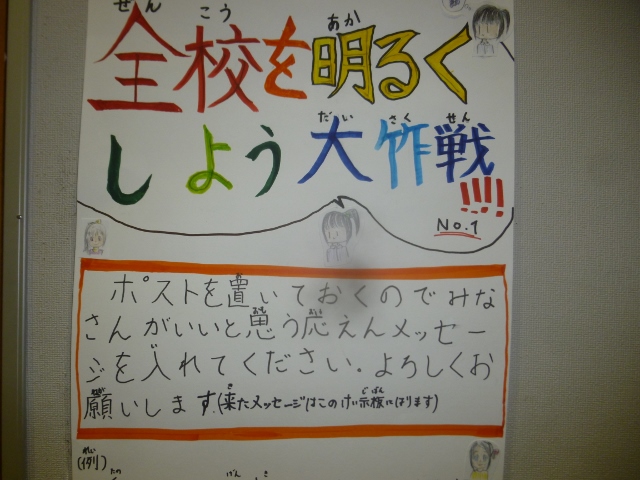 ぜん こう あか
全校を明るく
だい さく せん
しよう大作戦!!!!
No.1
ポストを置いておくのでみな
さんがいいと思う応えんメッセー
ジを入れてください。よろしくお
願いします。(来たメッセージはこのけい示板にはります)
れい
(例)